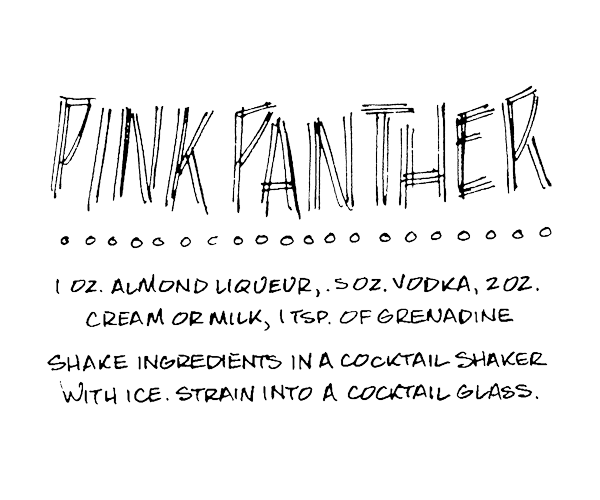 PINK PANTHER
1 OZ. ALMOND LIQUEUR, .5 OZ. VODKA, 2 OZ.
CREAM OR MILK, 1 TSP. OF GRENADINE
SHAKE INGREDIENTS IN A COCKTAIL SHAKER
WITH ICE. STRAIN INTO A COCKTAIL GLASS.